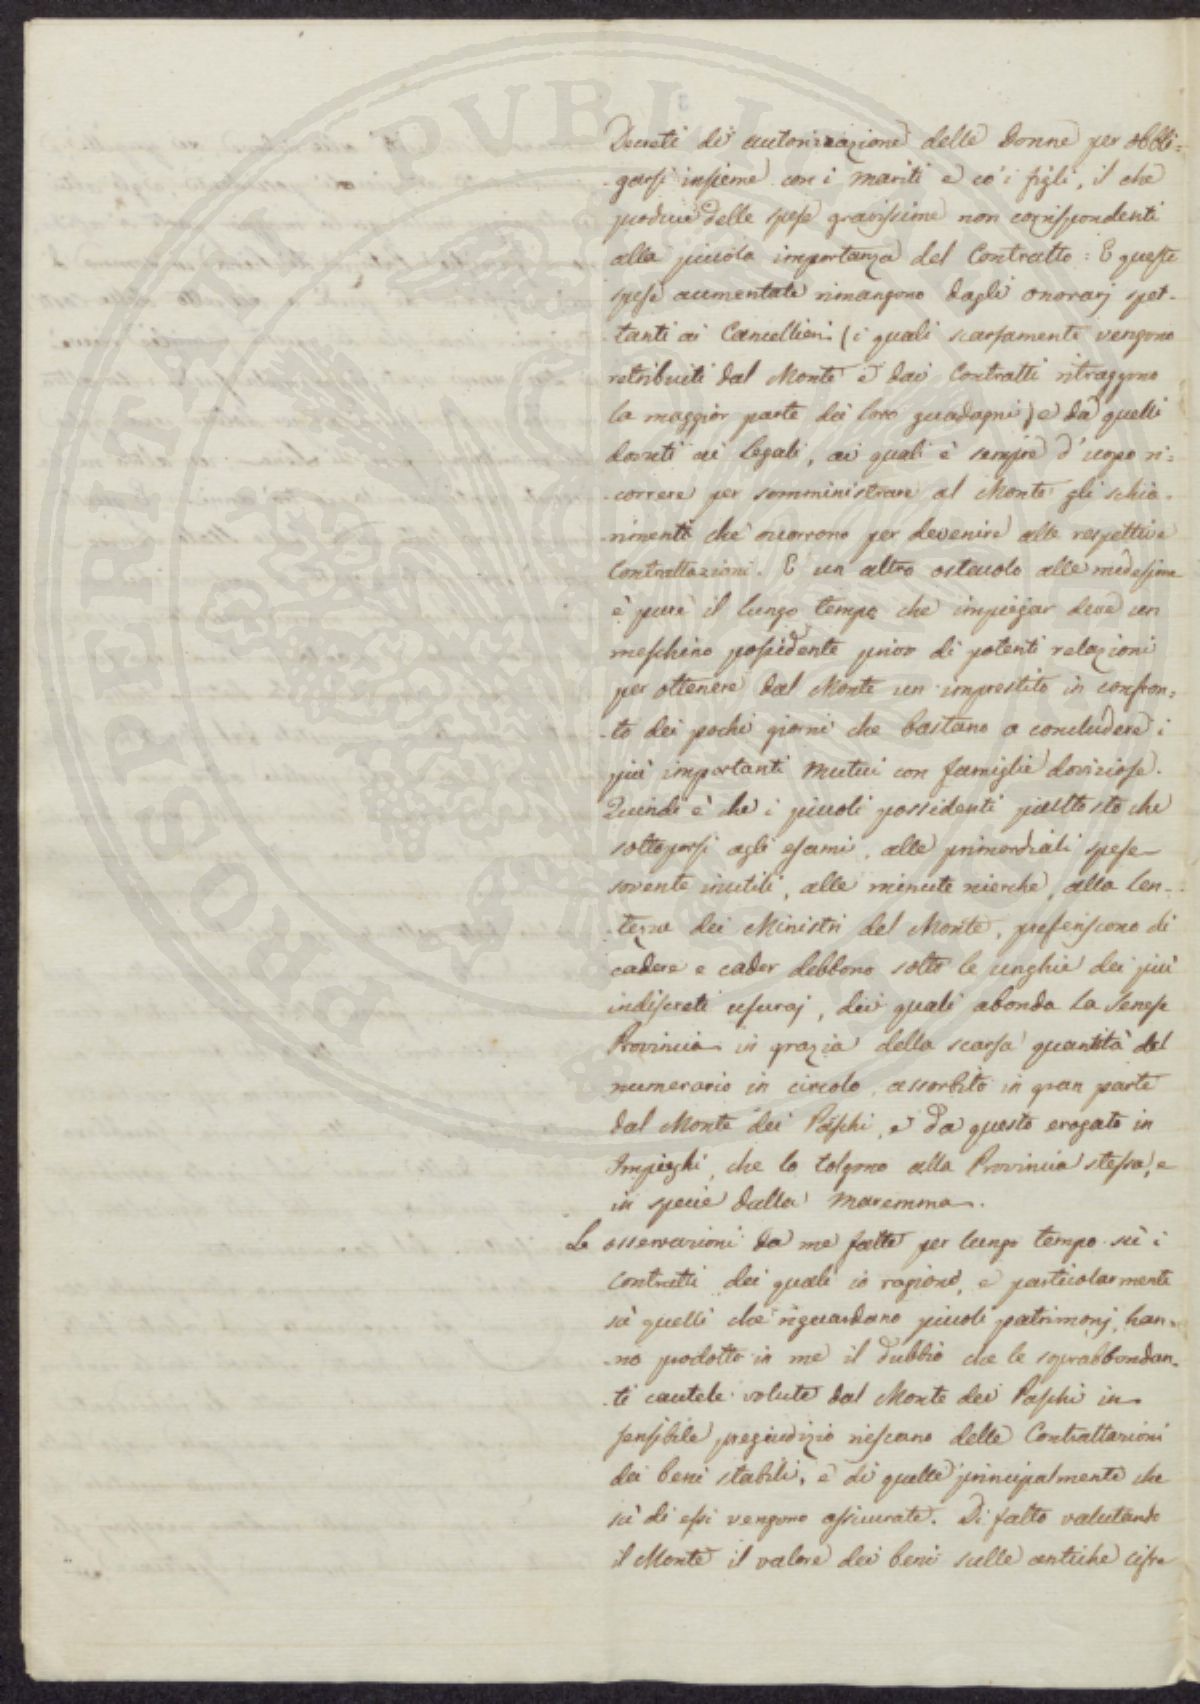 Decreti di autorizazione delle Donne per obbli=
=garsi insieme con i mariti e co' i figli, il che
produce delle spese gravissime non corrispondenti
alla piccola importanza del Contratto: E queste
spese aumentate rimangono dagli onorarj spet-
-tanti ai Cancellieri (i quali scarsamente vengono
retribuiti dal Monte e dai Contratti ritraggono
la maggior parte dei loro guadagni) e da quelli
dovuti ai Legali, ai quali è sempre d'uopo ri=
-correre per somministrare al Monte gli schia-
-rimenti che occorrono per devenire alle respettive
Contrattazioni. E un altro ostacolo alle medesime
è pure il lungo tempo che impiegar deve un
meschino possidente privo di potenti relazioni
per ottenere dal Monte un imprestito in confron=
-to dei pochi giorni che bastano a concludere i
più importanti Mutui con famiglie doviziose.
Quindi è che i piccoli possidenti piuttosto che
sottoporsi agli esami, alle primordiali spese
sovente inutili, alle minute ricerche, alla len-
-tezza dei Ministri del Monte, preferiscono di
cadere e cader debbono sotto le unghie dei più
indiscreti usuraj, dei quali abonda la Senese
Provincia in grazia della scarsa quantità del
numerario in circolo, assorbito in gran parte
dal Monte dei Paschi, e da questo erogato in
Impieghi, che lo tolgono alla Provincia stessa, e
in specie dalla Maremma.
Le osservazioni da me fatte per lungo tempo sù i
Contratti dei quali io ragiono, e particolarmente
sù quelli che riguardano piccoli patrimonj, han-
-no prodotto in me il dubbio che le soprabbondan-
-ti cautele volute dal Monte dei Paschi in
sensibile pregiudizio riescano delle Contrattazioni
dei beni stabili, e di quelle principalmente che
sù di essi vengono assicurate. Di fatto valutando
il Monte il valore dei beni sulle antiche cifre
PROSPERITATI PUBLI